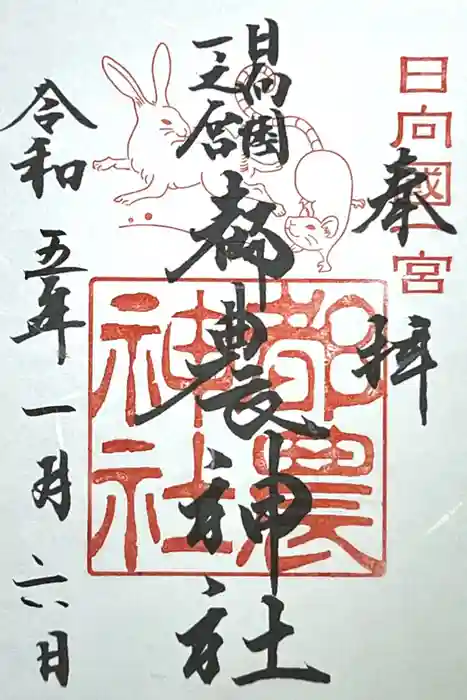 日向國一宮
奉拝
日向国
一之宮
都農神社
都農神社
令和五年一月六日